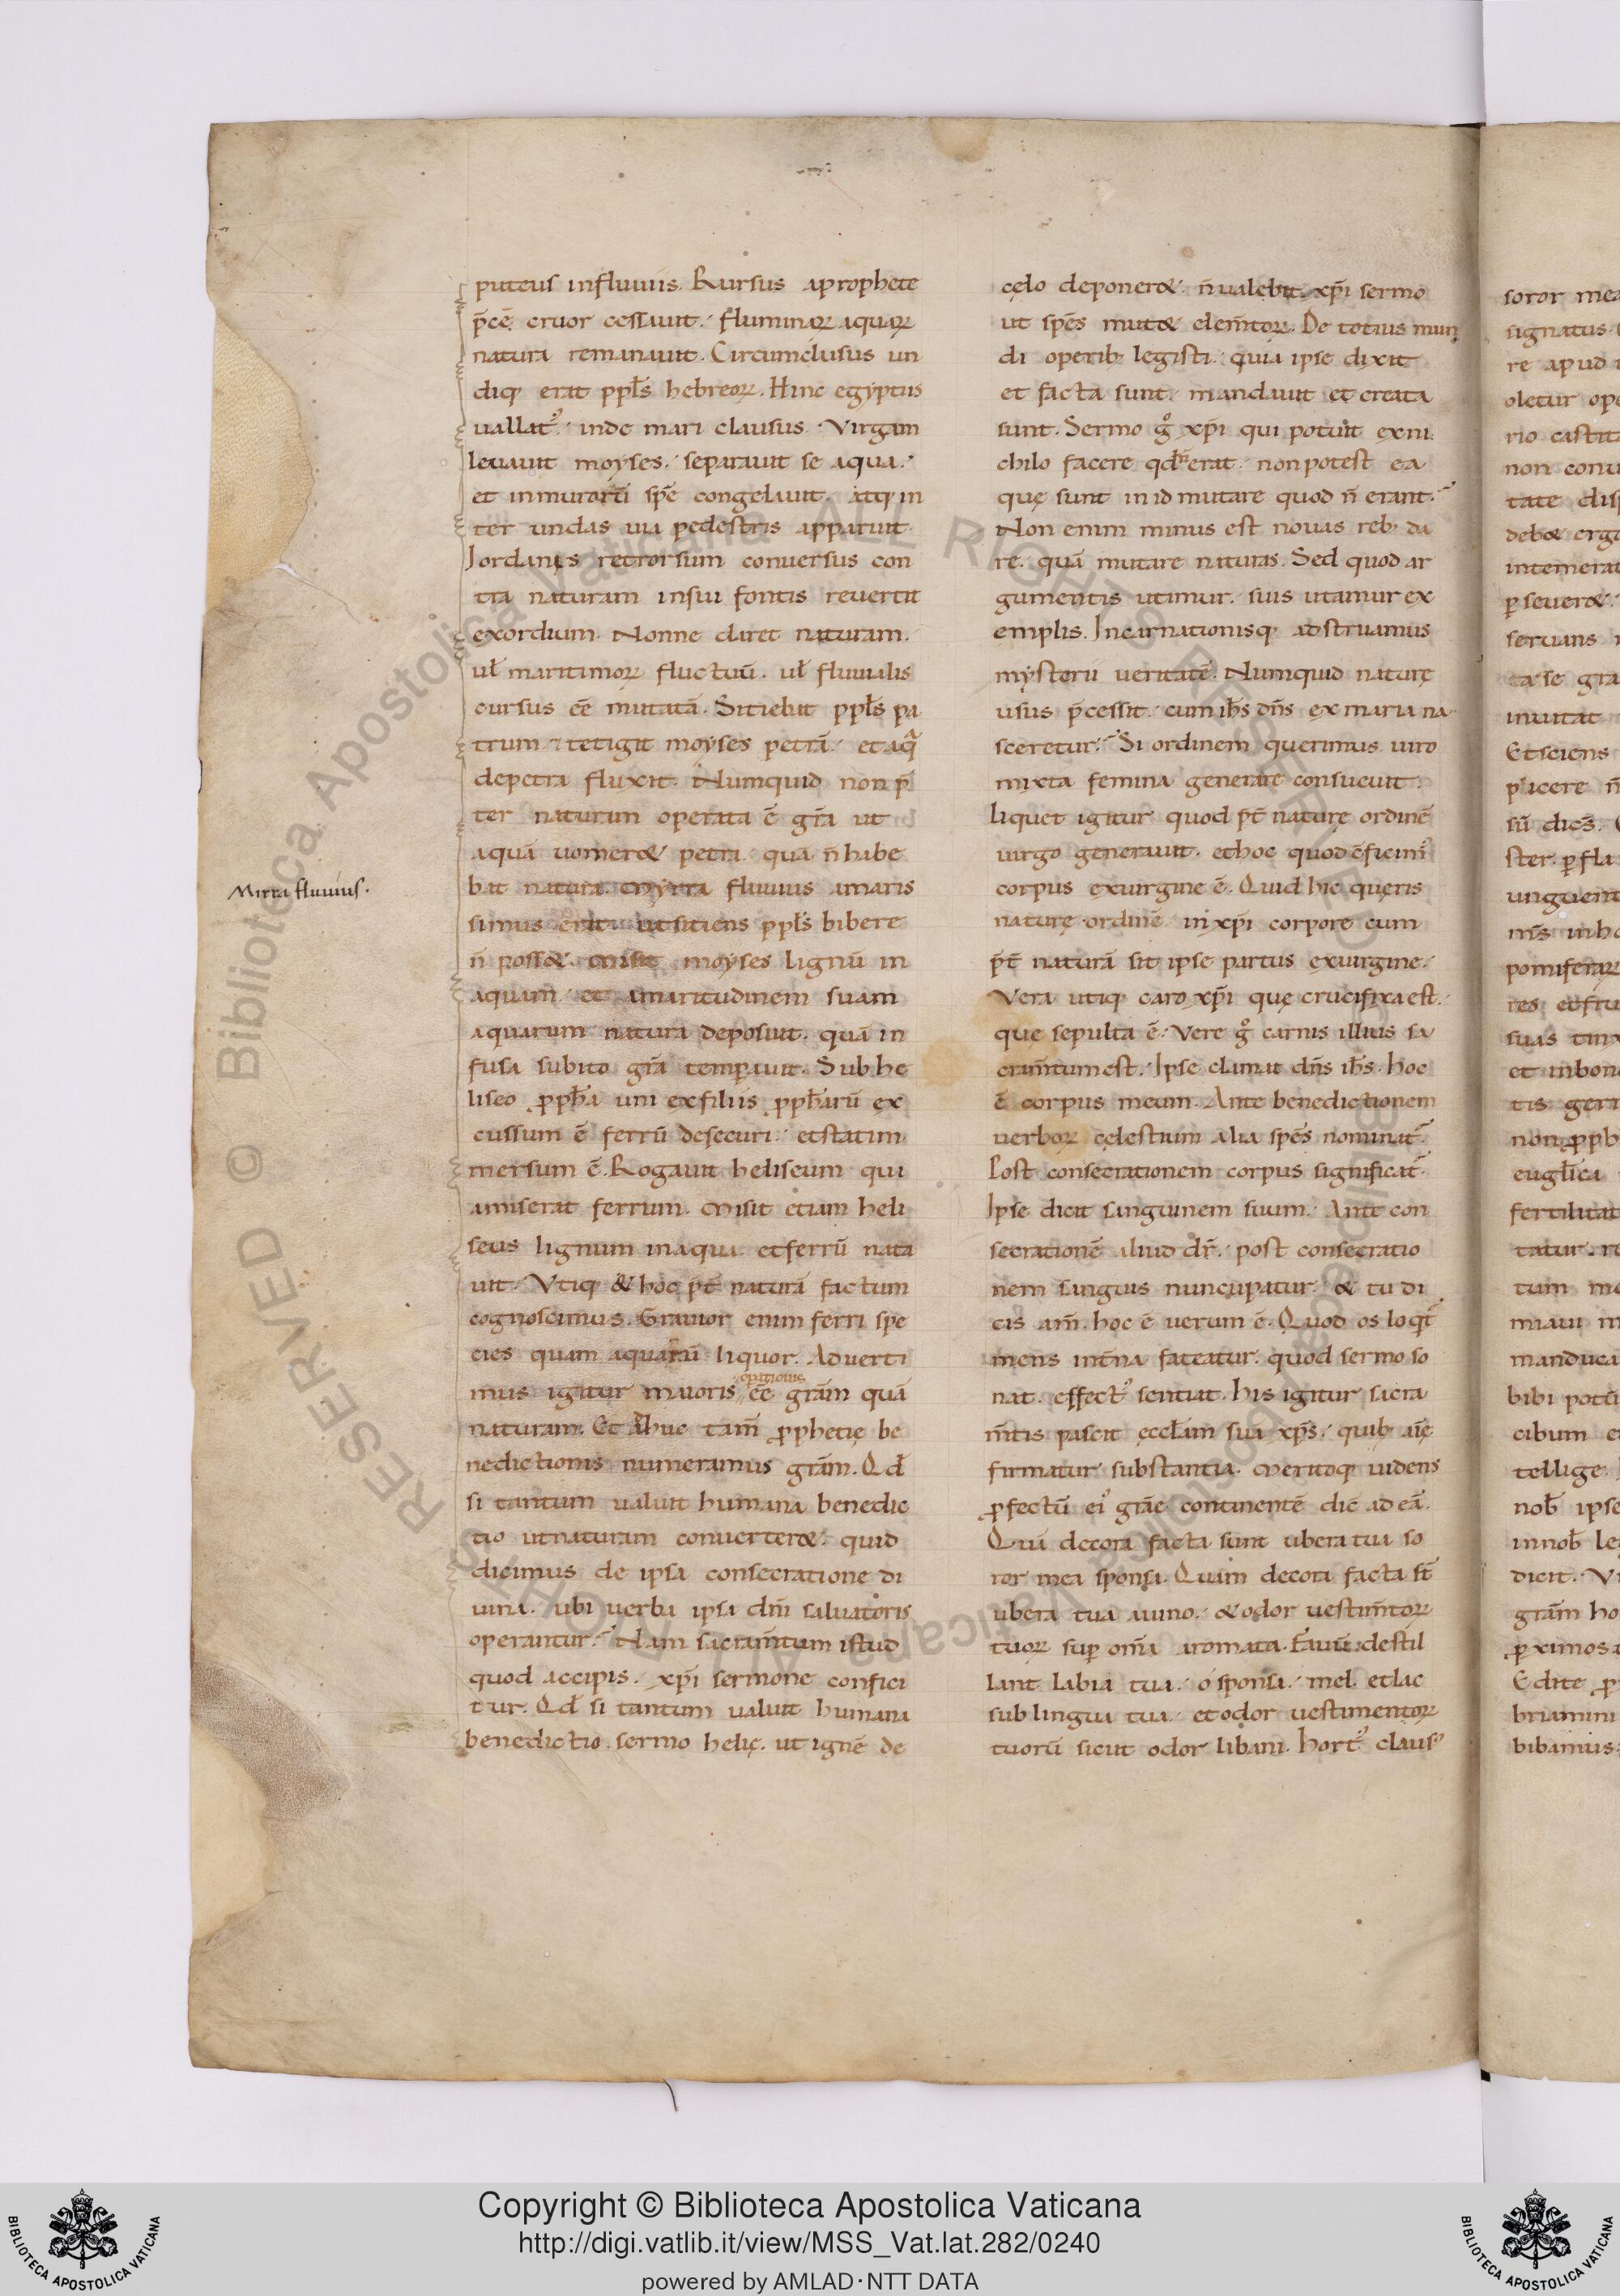 puteus influuiis. Rursus aprophete
p̄cē cruor cessauit. fluminaꝝ aquaꝝ
natura remanauit. Circumclusus un
diq; erat ppl̄s hebreoꝝ. Hinc egyptus
uallatꝰ. inde mari clausus. Virgam
leuauit moyses. separauit se aqua.
et inmuroꝝ spē congelauit. atq; in
ter undas uia pedestris apparuit.
Jordanes retrorsum conuersus con
tra naturam insui fontis reuertit
exordium. Nonne claret naturam.
ul̄ maritimoꝝ fluctuū. ul̄ fluuialis
cursus eē mutatā. Sitiebat ppl̄s pa
trum. tetigit moyses petrā. et aq̄
depetra fluxit. Numquid non p̄
ter naturam operata ē gr̄a ut
aquā uomer& petra. quā n̄ habe
bat natura. Myrra fluuius amaris
Mirra fluuius.
simus erat. ut sitiens ppl̄s bibere
n̄ poss&. misit moyses lignū in
aquam. et amaritudinem suam
aquarum natura deposuit. quā in
fusa subito gr̄a temp̱auit. Sub he
liseo ꝓph̄a uni exfiliis ꝓph̄arū ex
cussum ē ferrū desecuri. etstatim
mersum ē. Rogauit heliseum qui
amiserat ferrum. Misit etiam heli
seus lignum inaqua. etferrū nata
uit. Vtiq; & hoc p̄t naturā factum
cognoscimus. Grauior enim ferri spe
cies quam aquarū liquor. Aduerti
opationis
mus igitur maioris eē gr̄am quā
naturam. Et adhuc tam̄ ꝓphetię be
nedictionis numeramus gr̄am. Qd̄
si tantum ualuit humana benedic
tio utnaturam conuerter&. quid
dicimus de ipsa consecratione di
uina. ubi uerba ipsa dn̄i saluatoris
operantur. Nam sacram̄tum istud
quod accipis. xp̄i sermone confici
tur. Qd̄ si tantum ualuit humana
benedictio. sermo helię. ut ignē de
cęlo deponer&. n̄ualebit. xp̄i sermo
ut spēs mut& elem̄toꝝ. De totius mun
di operib; legisti. quia ipse dixit
et facta sunt. mandauit et creata
sunt. Sermo gͦ xp̄i qui potuit exni
chilo facere qd̄ n̄ erat. non potest ea
quę sunt in id mutare quod n̄ erant.
Non enim minus est nouas reb; da
re. quā mutare naturas. Sed quod ar
gumentis utimur. suis utamur ex
emplis. Incarnationisq; adstruamus
mysterii ueritatē. Numquid naturę
usus p̄cessit. cum ih̄s dn̄s ex maria na
sceretur. Si ordinem querimus uiro
mixta femina generare consueuit.
liquet igitur quod p̄t naturę ordinē
uirgo generauit. ethoc quod cōficimꝰ
corpus exuirgine ē. Quid hic quęris
naturę ordinē in xp̄i corpore cum
p̄t naturā sit ipse partus exuirgine.
Vera utiq; caro xp̄i quę crucifixa est.
que sepulta ē. Vere gͦ carnis illius sa
cram̄tum est. Ipse clamat dn̄s ih̄s. hoc
ē corpus meum. Ante benedictionem
uerboꝝ cęlestium alia spēs nominat̄.
Post consecrationem corpus significat̄.
Ipse dicit sanguinem suum. Ante con
secrationē aliud dr̄. post consecratio
nem sanguis nuncupatur. & tu di
cis am̄. hoc ē uerum ē. Quod os loqt̄
mens int̄na fateatur. quod sermo so
nat. effectꝰ sentiat. his igitur sacra
m̄tis pascit ęccl̄am sua xp̄s. quib; aīę
firmatur substantia. Meritoq; uidens
ꝓfectū eiꝰ gr̄ae continentē dic̄ ad eā.
Quā decora facta sunt ubera tua so
ror mea sponsa. Quam decora facta st̄
ubera tua auino. & odor uestim̄toꝝ
tuoꝝ sup̱ om̄a aromata. Fauū destil
lant labia tua. o sponsa. mel etlac
sub lingua tua. etodor uestimentoꝝ
tuorū sicut odor libani. hortꝰ clausꝰ
soror mea
signatus
re apud
oletur ope
rio castit
non conu
tate disp
deb& ergo
intemerat
p̱seuer&.
seruans
ca se gra
inuitat
Et sciens
placere n̄
sū dicēs.
ster. p̱fla
unguent
m̄s inho
pomiferaꝝ
res etfru
suas tin
et inbon
tis geri
non ꝓph
eugl̄ica
fertilitat
tatur.
tum me
miaui m
manduca
bibi potū
cibum et
tellige.
nob̄ ipse
innob̄ le
dicit. Vi
gr̄am ho
ꝓximos
Edite ꝓ
briamini
bibamus
Copyright © Biblioteca Apostolica Vaticana
http://digi.vatlib.it/view/MSS_Vat.lat.282/0240
powered by AMLAD·NTT DATA
BIBLIOTECA APOSTOLICA VATICANA
BIBLIOTECA APOSTOLICA VATICANA